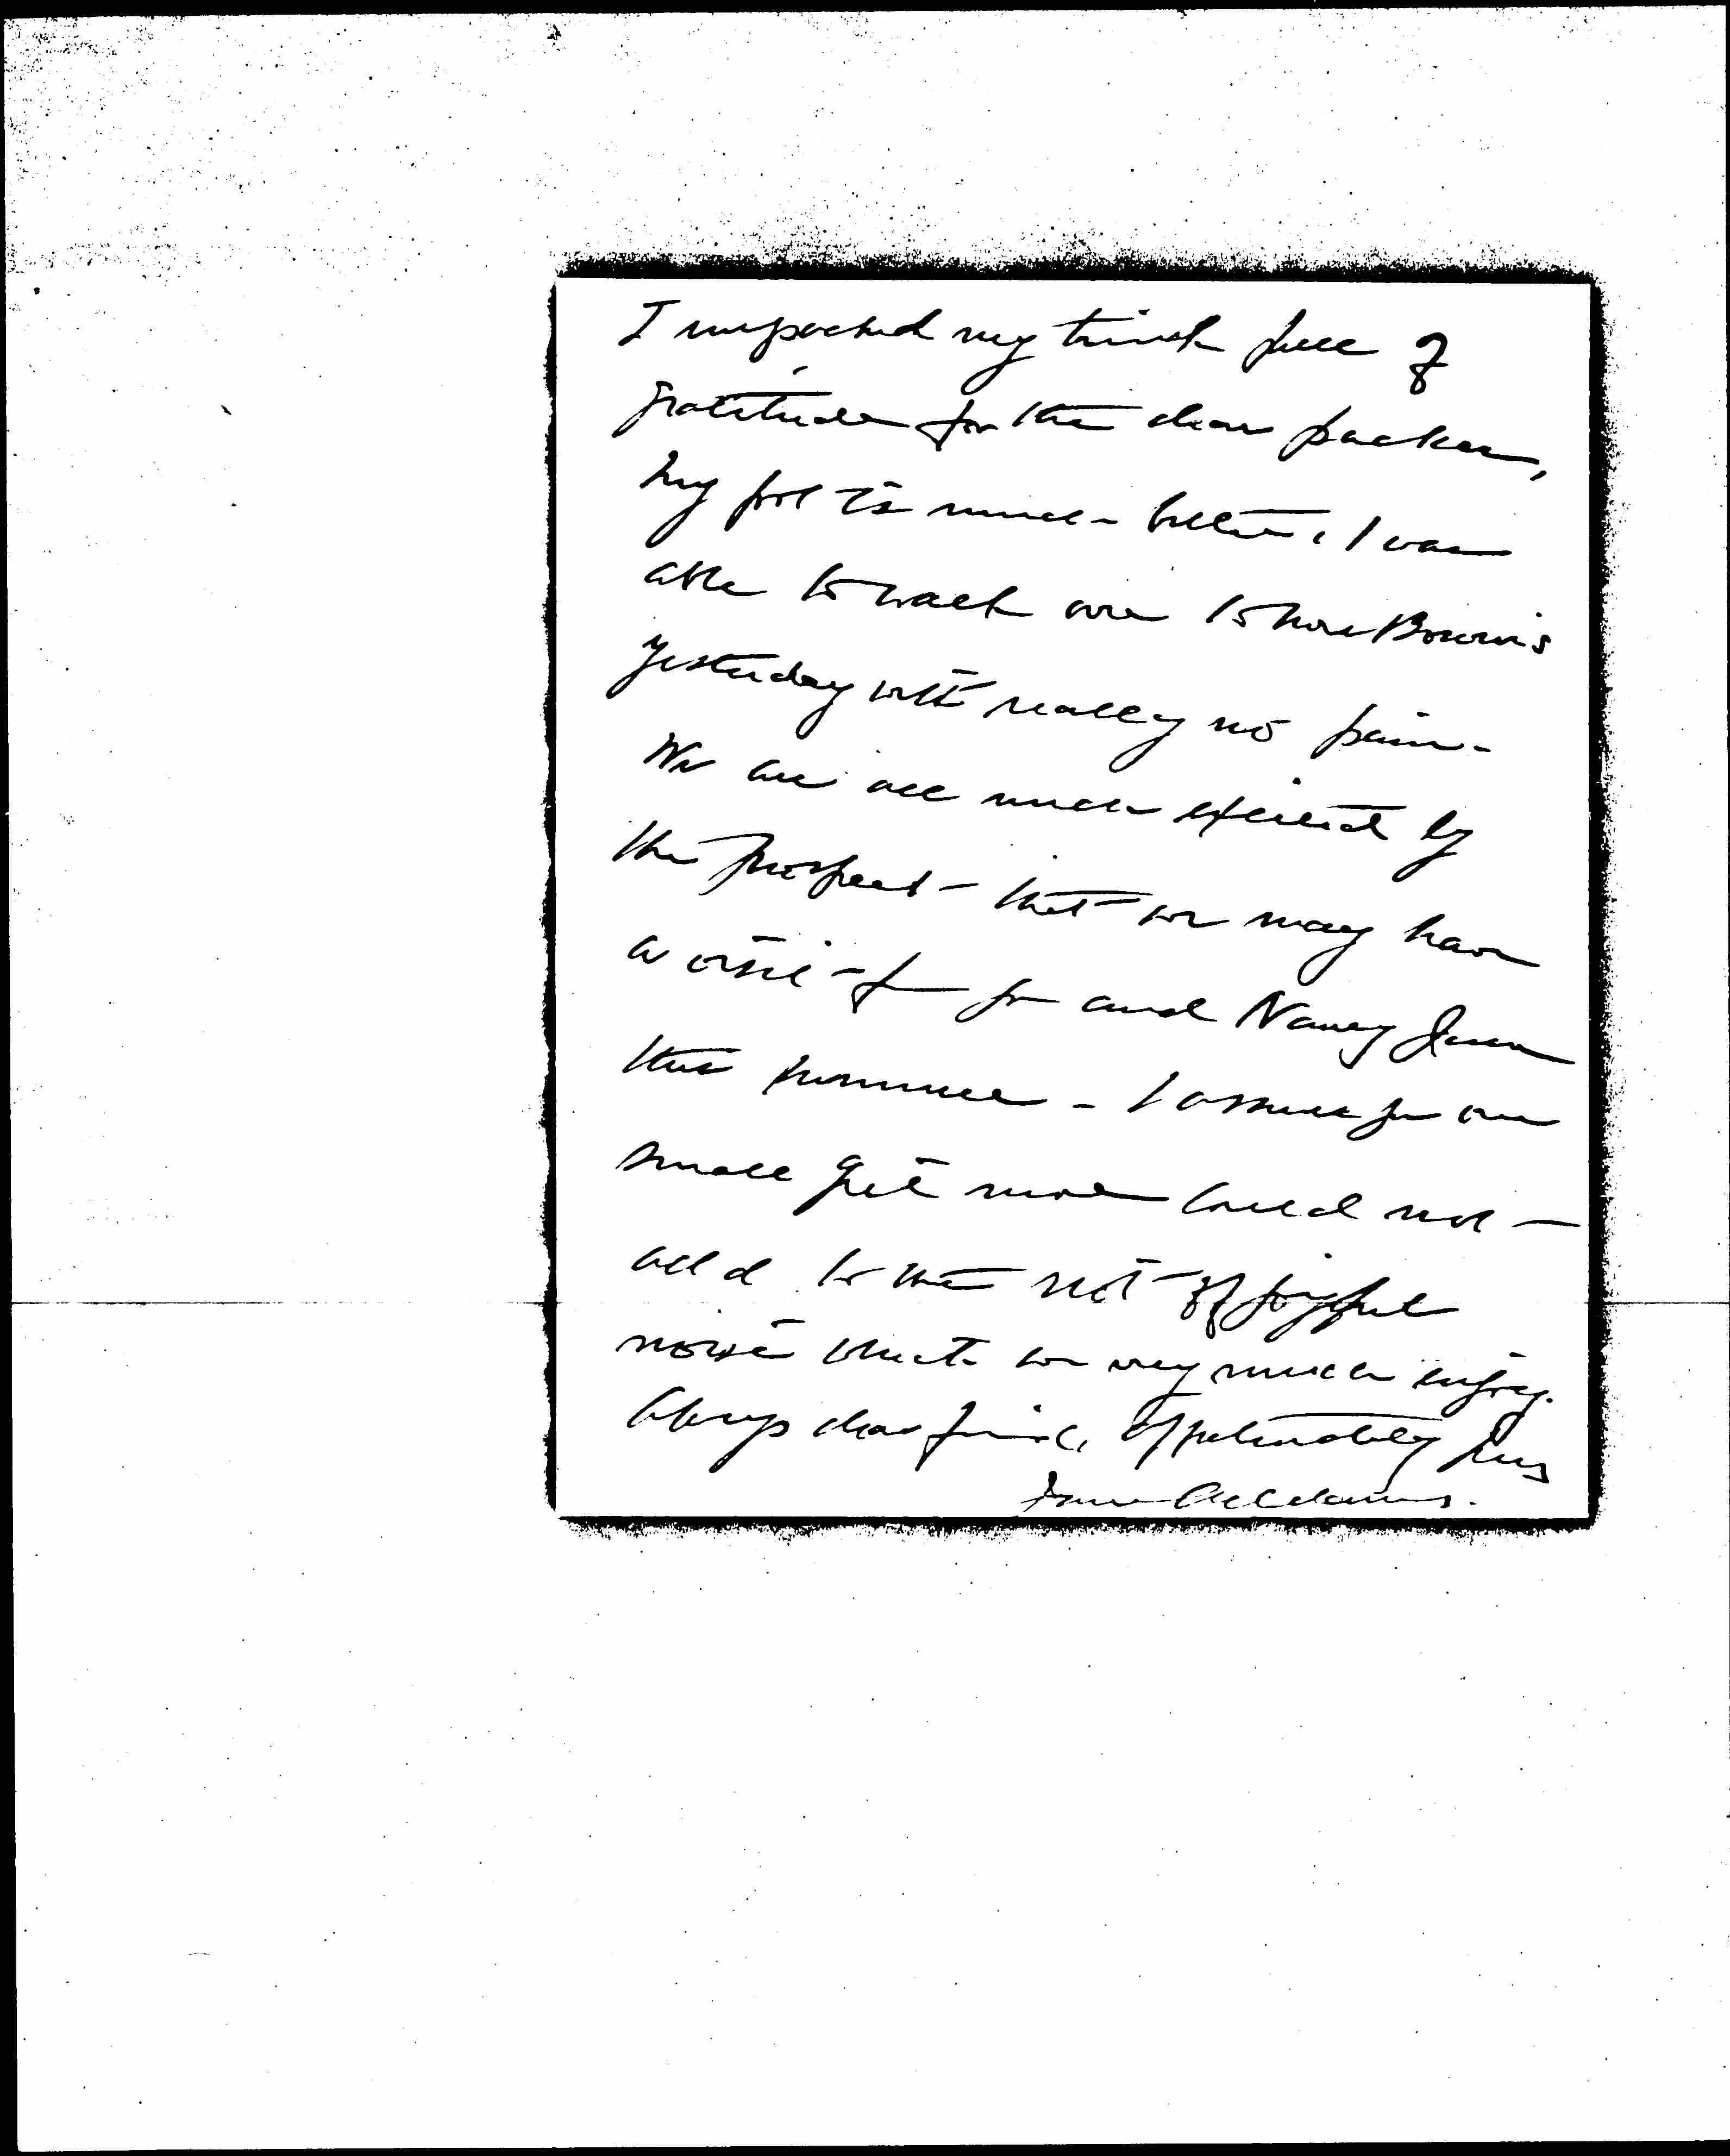 I unpacked my trunk full of
gratitude for the dear packer,
My foot is much better, I was
able to walk over to Mrs Bowen's
yesterday with really no pain.
We are all much excited by
the prospect that we may have
a visit from you and Nancy
this summer - I assure you one
small girl more could not
add to the riot of joyful
noise which we very much enjoy.
Always dear friend, affectionately yours
Jane Addams.